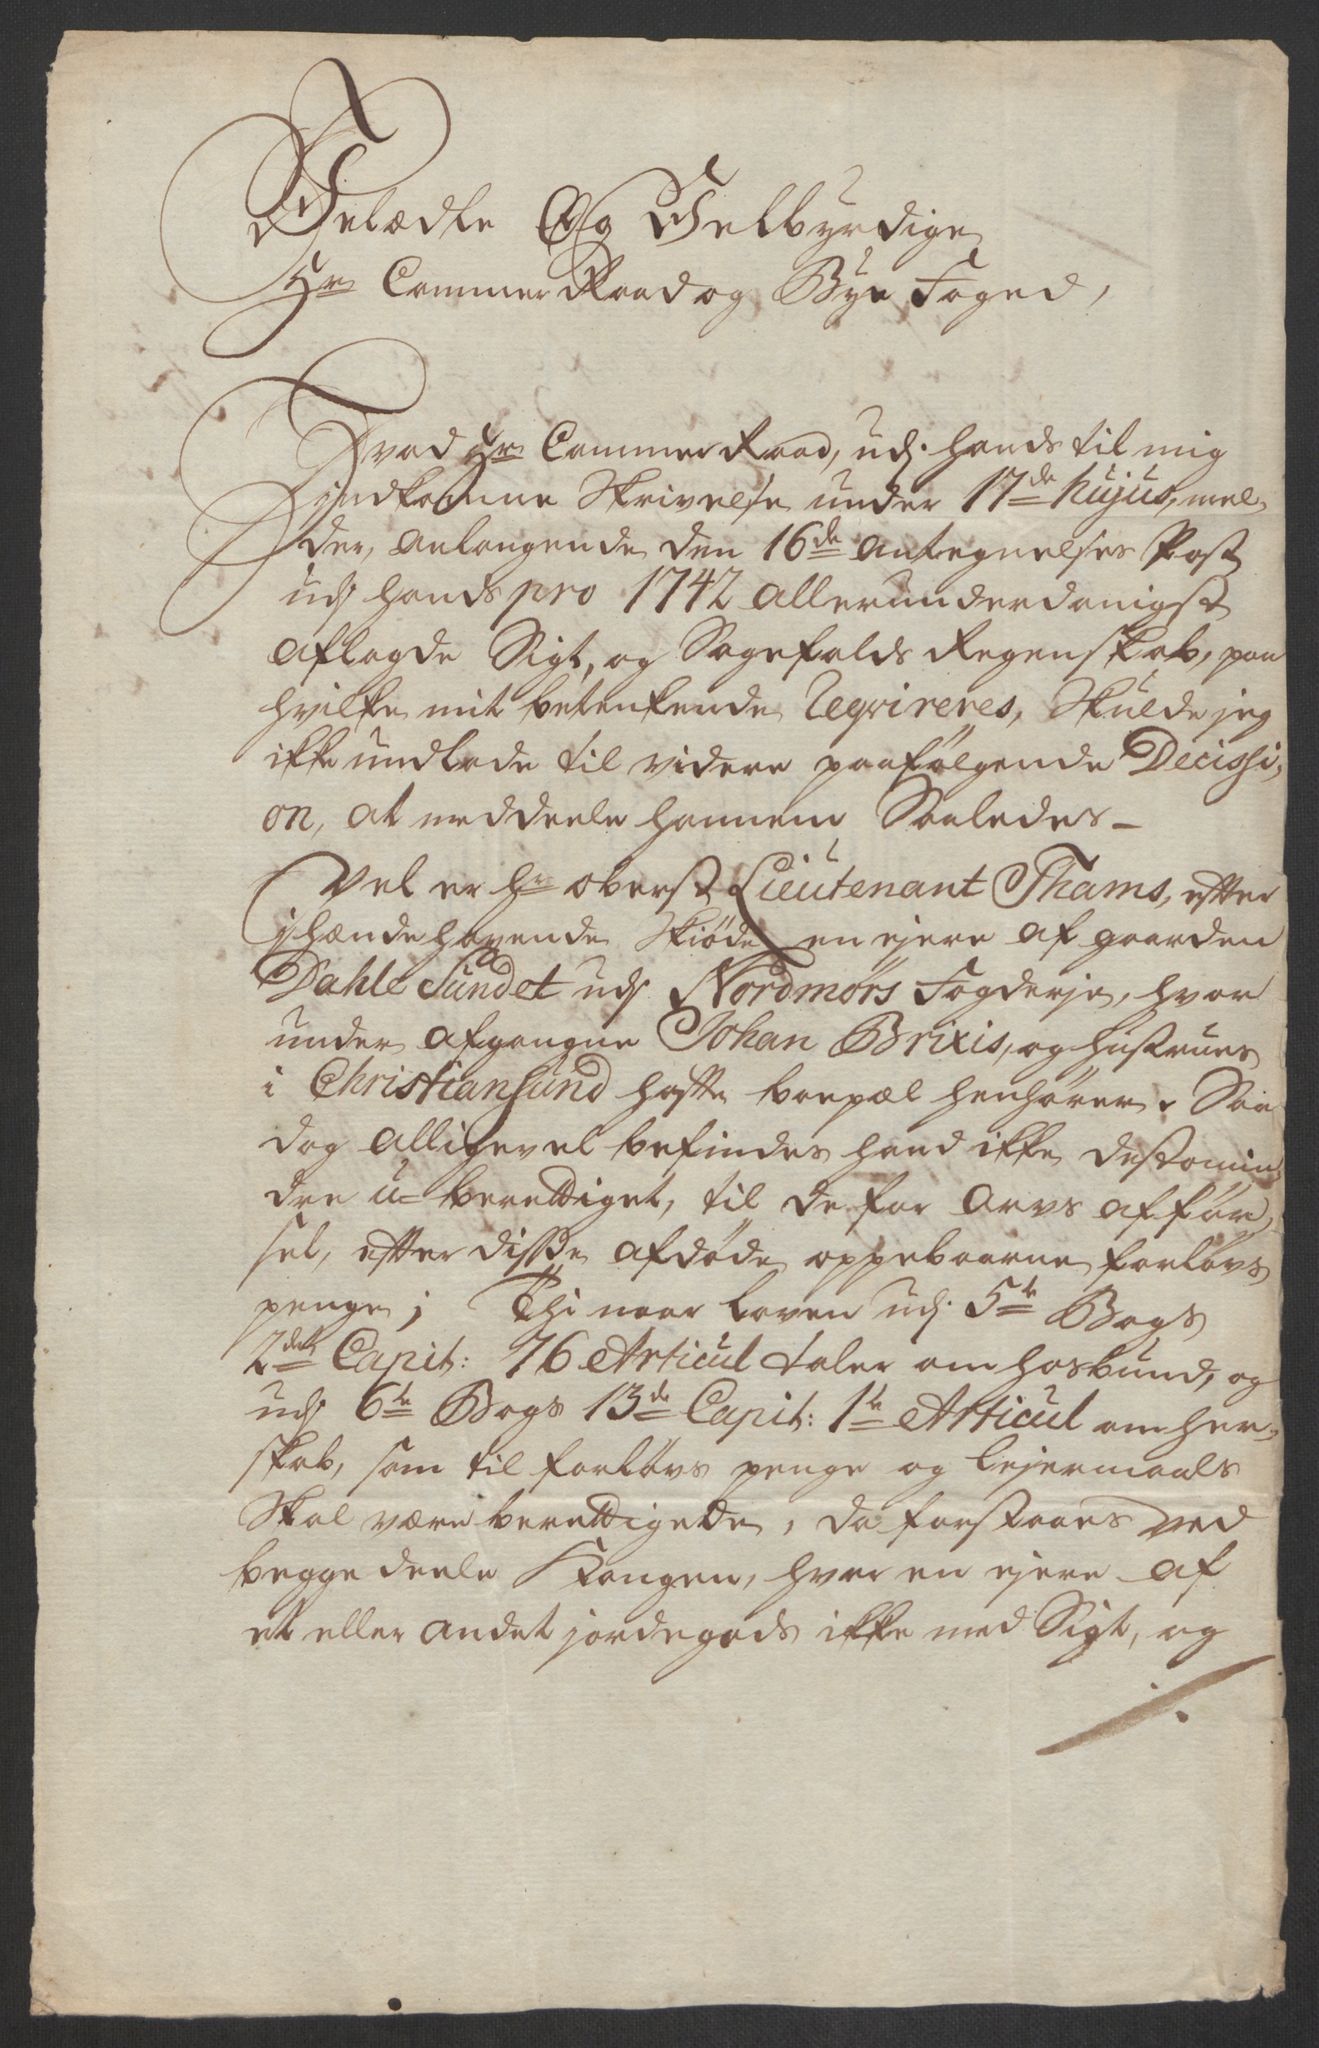 Velædle Og Velbyrdige
Hr Cammer Raad og Bye Foged,
Hvad Hr Cammer Raad, udj hands til mig
indkomne Skrivelse under 17de hujus, mel-
der, anlangende den 16de antegnelses Post
udj hands pro 1742 allerunderdanigst
aflagde Sigt, og Sagefalds Regenskab, paa
hvilke mit betenkende Reqvireres, Skulde jeg
ikke undlade til videre paafølgende Decissi-
on, at meddeele hannem Saaledes -
Vel er hr oberst Lieutenant Thams, efter
j hænde havende Skiøde en ejere af gaarden
Dahle Sundet udj Nordmørs Fogderje, hvor
under afgangne Johan Brixis, og hustrues
i Christiansund hafte boepæl henhører. Saa
dog alligevel befindes hand ikke destomin
dre u-berettiget, til de for Arvs afför-
sel, efter disse afdøde oppebaarne forlovs
penge; Thi naar loven udj 5te Bogs
2det Capit: 76 Articul taler om hosbund, og
udj 6te Bogs 13de Capit: 1te Articul om her-
skab, som til forlovs penge og lejermaals
Skal være berettigede, da forstaaes ved
begge deele Kongen, hvor en ejere af
et eller andet jordegods ikke med Sigt, og